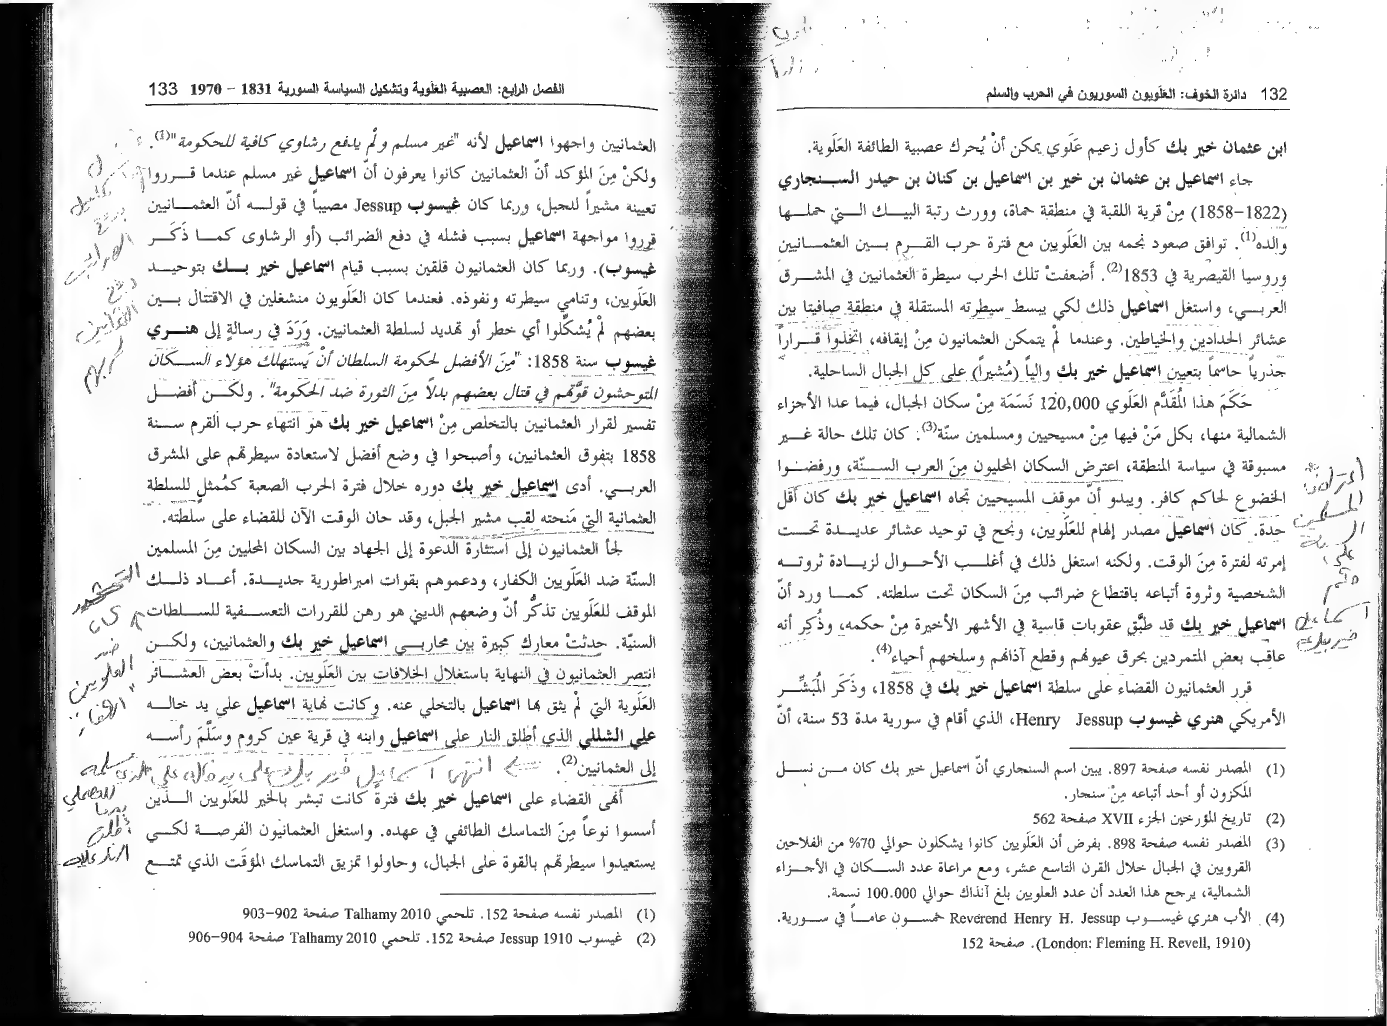 132 دائرة الخوف: العَلَويون السوريون في الحرب والسلم
ابن عثمان خير بك كأول زعيم عَلَوي يمكن أنْ يُحرك عصبية الطائفة العَلَوية.
جاء اسماعيل بن عثمان بن خير بن اسماعيل بن كنان بن حيدر السنجاري
(1822–1858) مِنْ قرية اللقبة في منطقة حماة، وورث رتبة البيك التي حملها
والده(1). توافق صعود نجمه بين العَلَويين مع فترة حرب القرم بين العثمانيين
وروسيا القيصرية في 1853(2). أَضعفتْ تلك الحرب سيطرة العثمانيين في المشرق
العربي، واستغل اسماعيل ذلك لكي يبسط سيطرته المستقلة في منطقة صافيتا بين
عشائر الحدادين والخياطين. وعندما لمْ يتمكن العثمانيون مِنْ إيقافه، اتخذوا قراراً
جذرياً حاسماً بتعيين اسماعيل خير بك والياً (مُشيراً) على كل الجبال الساحلية.
حَكَمَ هذا المُقَدَّم العَلَوي 120,000 نَسَمَة مِنْ سكان الجبال، فيما عدا الأجزاء
الشمالية منها، بكل مَنْ فيها مِنْ مسيحيين ومسلمين سنّة(3). كان تلك حالة غير
مسبوقة في سياسة المنطقة، اعترض السكان المحليون مِنَ العرب السنّة، ورفضوا
الخضوع لحاكم كافر. ويبدو أنّ موقف المسيحيين تجاه اسماعيل خير بك كان أقل
حدة. كان اسماعيل مصدر إلهام للعَلَويين، ونجح في توحيد عشائر عديدة تحت
إمرته لفترة مِنَ الوقت. ولكنه استغل ذلك في أغلب الأحوال لزيادة ثروته
الشخصية وثروة أتباعه باقتطاع ضرائب مِنَ السكان تحت سلطته. كما ورد أنّ
اسماعيل خير بك قد طبَّق عقوبات قاسية في الأشهر الأخيرة مِنْ حكمه، وذُكِر أنه
عاقب بعض المتمردين بحرق عيونهم وقطع آذانهم وسلخهم أحياء(4).
قرر العثمانيون القضاء على سلطة اسماعيل خير بك في 1858، وذَكَر المُبَشِّر
الأمريكي هنري غيسوب Henry Jessup، الذي أقام في سورية مدة 53 سنة، أنّ
(1) المصدر نفسه صفحة 897. يبين اسم السنجاري أنّ اسماعيل خير بك كان من نسل
المكزون أو أحد أتباعه مِنْ سنجار.
(2) تاريخ المؤرخين الجزء XVII صفحة 562
(3) المصدر نفسه صفحة 898. بفرض أن العَلَويين كانوا يشكلون حوالي 70% من الفلاحين
القرويين في الجبال خلال القرن التاسع عشر، ومع مراعاة عدد السكان في الأجزاء
الشمالية، يرجح هذا العدد أن عدد العلويين بلغ آنذاك حوالي 100.000 نسمة.
(4) الأب هنري غيسوب Reverend Henry H. Jessup خمسون عاماً في سورية.
(London: Fleming H. Revell, 1910). صفحة 152
اعتراض
المسلمين
على
حكم
اسماعيل
خير بك
الفصل الرابع: العصبية العَلَوية وتشكيل السياسة السورية 1831 – 1970 133
العثمانيين واجهوا اسماعيل لأنه "غير مسلم ولمْ يدفع رشاوي كافية للحكومة"(1).
ولكنْ مِنَ المؤكد أنّ العثمانيين كانوا يعرفون أنّ اسماعيل غير مسلم عندما قرروا
تعيينه مشيراً للجبل، وربما كان غيسوب Jessup مصيباً في قوله أنّ العثمانيين
قرروا مواجهة اسماعيل بسبب فشله في دفع الضرائب (أو الرشاوى كما ذَكَر
غيسوب). وربما كان العثمانيون قلقين بسبب قيام اسماعيل خير بك بتوحيد
العَلَويين، وتنامي سيطرته ونفوذه. فعندما كان العَلَويون منشغلين في الاقتتال بين
بعضهم لمْ يُشكّلوا أي خطر أو تهديد لسلطة العثمانيين. وَرَدَ في رسالةٍ إلى هنري
غيسوب سنة 1858: "مِنَ الأفضل لحكومة السلطان أنْ يَستهلك هؤلاء السكان
المتوحشون قوَّتهم في قتال بعضهم بدلاً مِنَ الثورة ضد الحكومة". ولكن أفضل
تفسير لقرار العثمانيين بالتخلص مِنْ اسماعيل خير بك هو انتهاء حرب القرم سنة
1858 بتفوق العثمانيين، وأصبحوا في وضع أفضل لاستعادة سيطرتهم على المشرق
العربي. أدى إسماعيل خير بك دوره خلال فترة الحرب الصعبة كمُمثلٍ للسلطة
العثمانية التي مَنحته لقب مشير الجبل، وقد حان الوقت الآن للقضاء على سلطته.
لجأ العثمانيون إلى استثارة الدعوة إلى الجهاد بين السكان المحليين مِنَ المسلمين
السنّة ضد العَلَويين الكفار، ودعموهم بقوات امبراطورية جديدة. أعاد ذلك
الموقف للعَلَويين تذكُّر أنّ وضعهم الديني هو رهن للقررات التعسفية للسلطات
السنيّة. حدثتْ معارك كبيرة بين محاربي اسماعيل خير بك والعثمانيين، ولكن
انتصر العثمانيون في النهاية باستغلال الخلافات بين العَلَويين. بدأتْ بعض العشائر
العَلَوية التي لم يثق بها اسماعيل بالتخلي عنه. وكانت نهاية اسماعيل على يد خاله
علي الشللي الذي أطلق النار على اسماعيل وابنه في قرية عين كروم وسَلَّمَ رأسه
إلى العثمانيين(2). انتهى اسماعيل خير بك على يد خاله علي
أنهى القضاء على اسماعيل خير بك فترةً كانت تبشر بالخير للعَلَويين الذين
أسسوا نوعاً مِنَ التماسك الطائفي في عهده. واستغل العثمانيون الفرصة لكي
يستعيدوا سيطرتهم بالقوة على الجبال، وحاولوا تمزيق التماسك المؤقت الذي تمتع
(1) المصدر نفسه صفحة 152. تلحمي Talhamy 2010 صفحة 902–903
(2) غيسوب Jessup 1910 صفحة 152. تلحمي Talhamy 2010 صفحة 904–906
ضد
العلويين
النار عليه